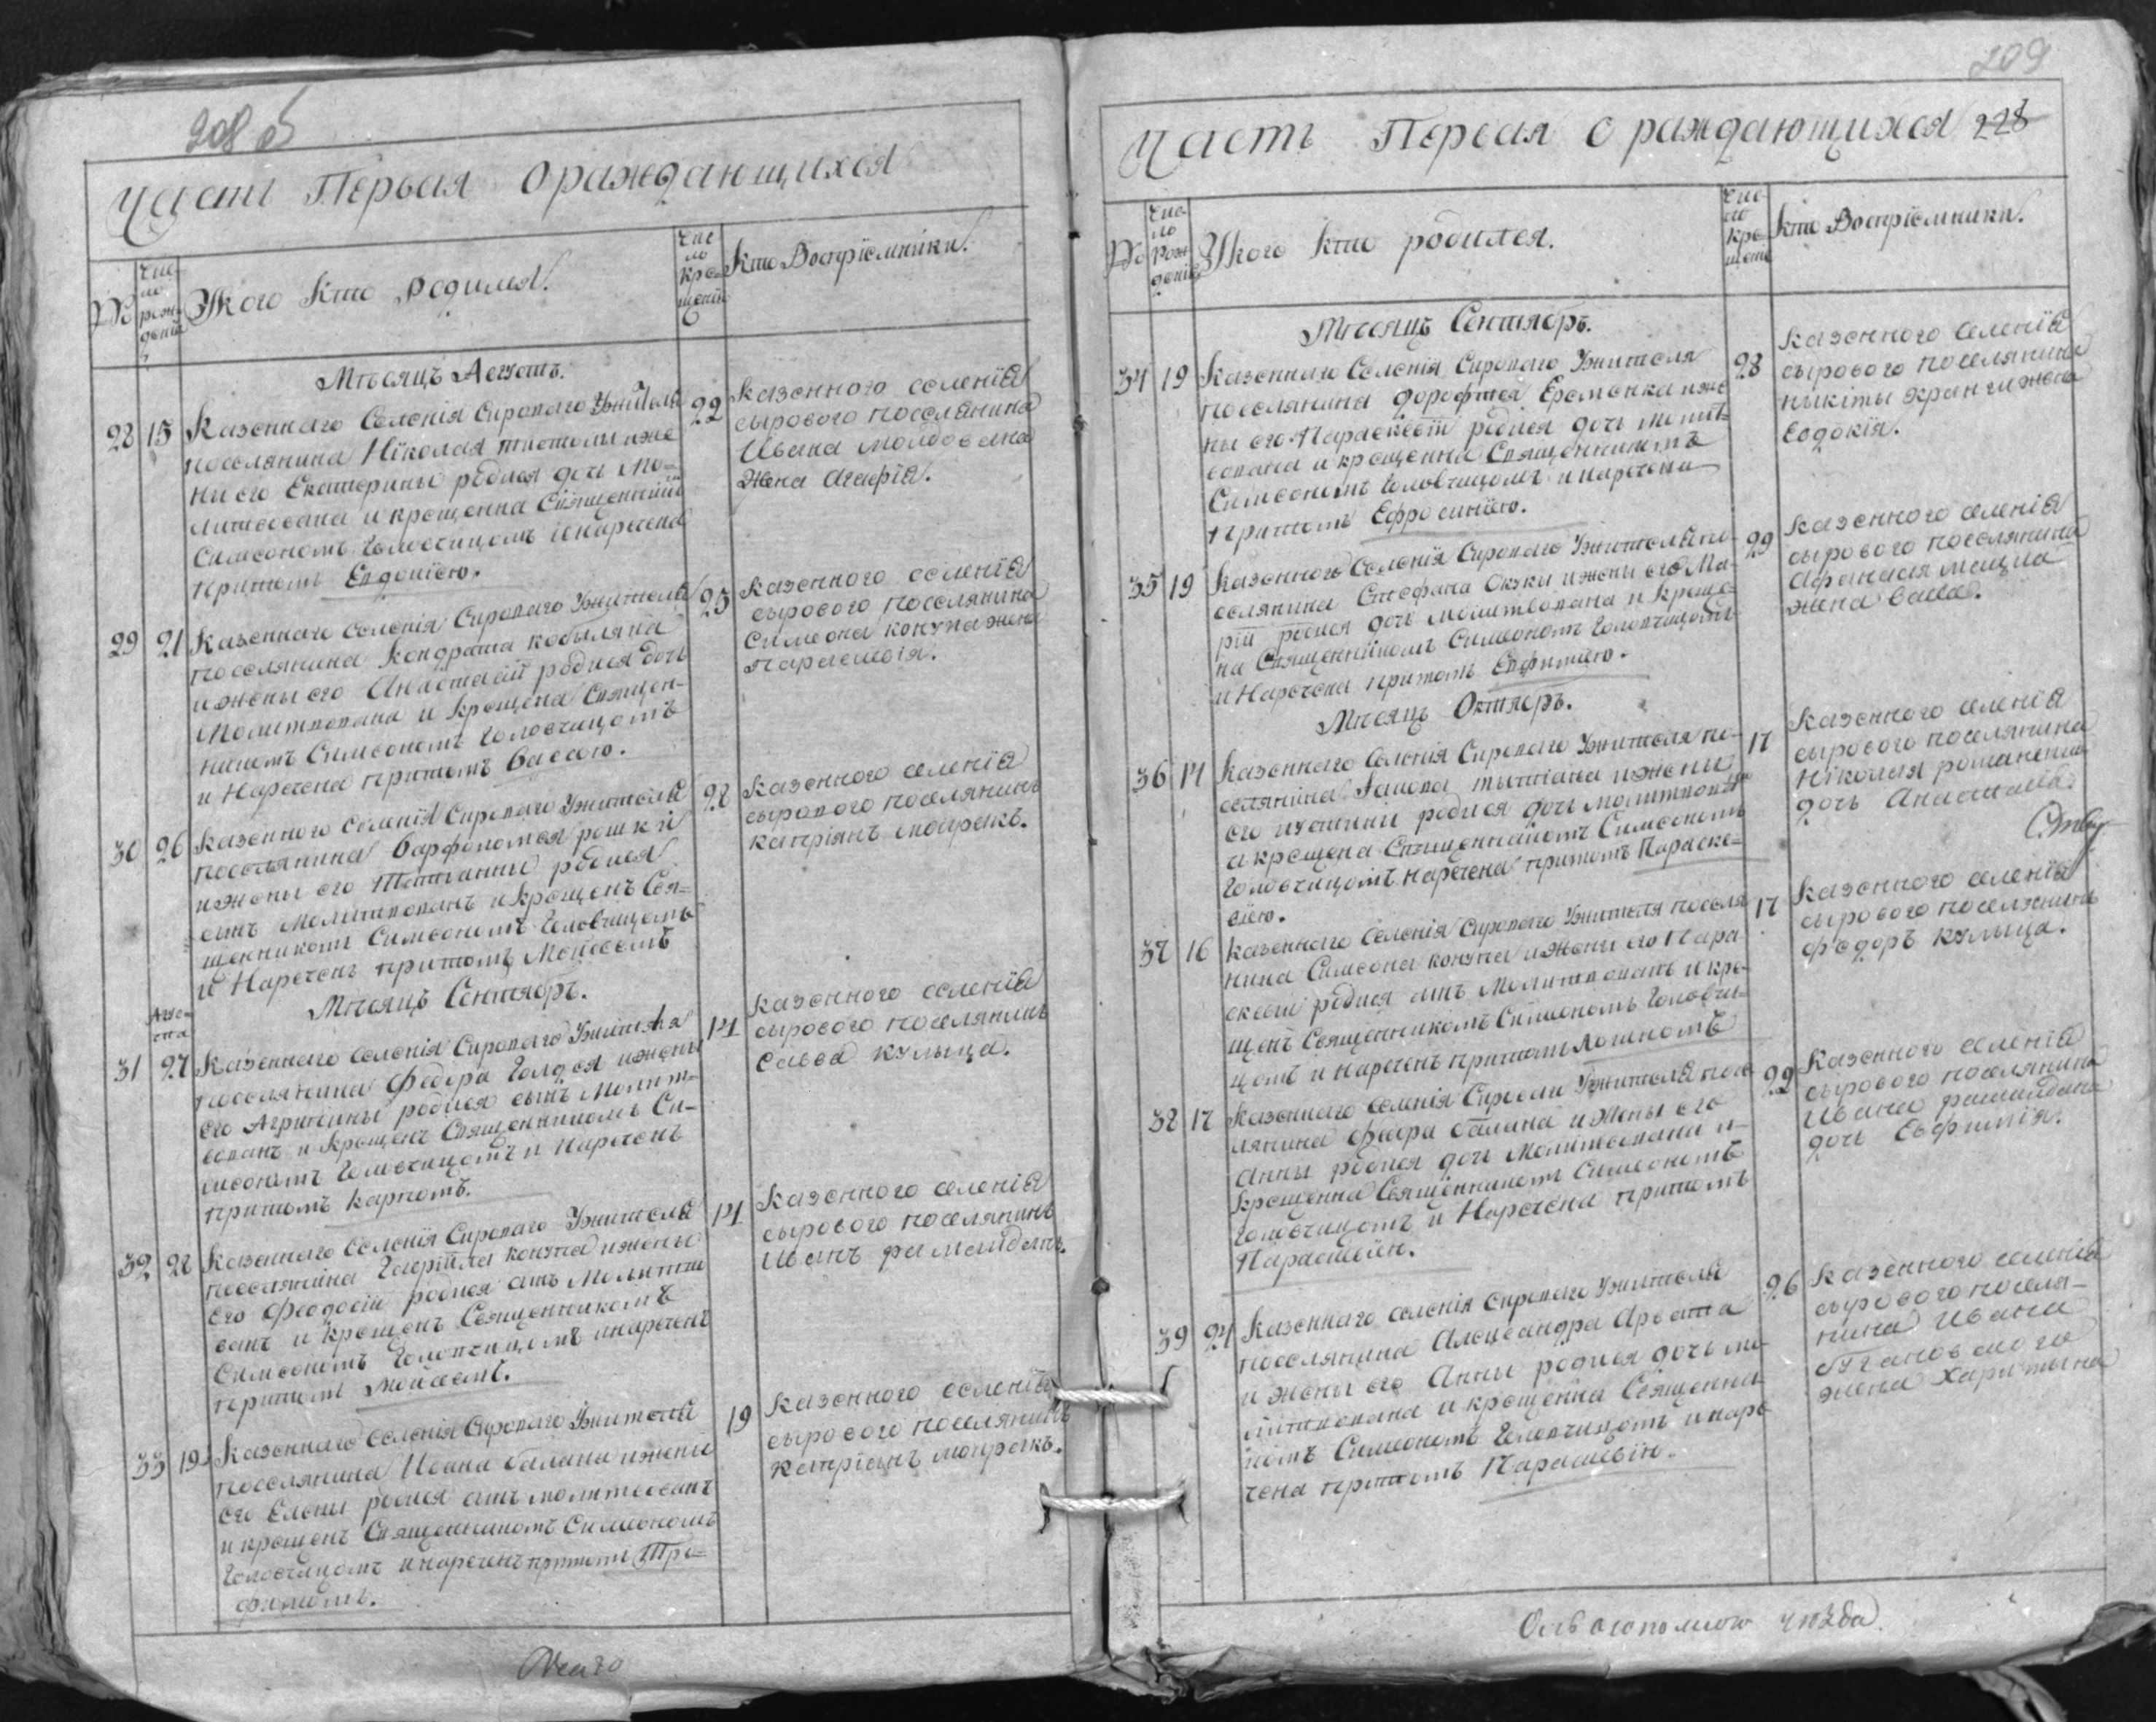 208 б
Часть Первая о раждающихся
№
Чис
ло
рож
дения
У кого кто родился.
Чис
ло
кре
щения
Кто Восприемники.
Месяцъ Августъ.
28 15 Казенного Селенія Сироваго Жителя
поселянина Николая
ни его Екатерины родися дочь Мо-
литвована и крещенна Священникомъ
Симеономъ Головчицомъ и наречена
притомъ Евдокіею.
22 казенного селенія
сырового поселянина
Ивана молдована
жена агафія.
29 21 Казенного Селенія Сироваго Жителя
поселянина Кондрата кобыляна
и жены его Анастасіи родися дочь
Молитвована и Крещена Священ-
никомъ Симеономъ Головчицомъ
и Наречена притомъ Вассою.
25 казенного селенія
сырового поселянина
Симеона конупа жена
Параскевія.
30 26 Казенного Селенія Сироваго Жителя
поселянина Варфоломея рошки
и жены его Татіанны родися
сынъ Молитвованъ и Крещенъ Свя-
щенникомъ Симеономъ Головчицомъ
и Нареченъ притомъ Мойсеемъ
28 казенного селенія
сырового поселянинъ
капріянъ мокрякъ.
Месяцъ Сентябрь.
Авгу-
ста
31 27 Казенного Селенія Сироваго Жителя
поселянина Федора Голдея и жены
его Агрипины родися сынъ Молит-
вованъ и Крещенъ Священникомъ Си-
меономъ Головчицомъ и Нареченъ
притомъ Карпомъ.
14 казенного селенія
сырового поселянинъ
Савва кульца.
32 28 Казенного Селенія Сироваго Жителя
поселянина Гавріила конупа и жены
его Феодосіи родися сынъ Молитво
ванъ и Крещенъ Священникомъ
Симеономъ Головчицомъ и нареченъ
притомъ Мойсеемъ.
14 казенного селенія
сырового поселянинъ
Иванъ фамаиданъ.
33 19 Казенного Селенія Сироваго Жителя
поселянина Ивана балана и жены
его Елены родися сынъ молитвованъ
и крещенъ Священникомъ Симеономъ
Головчицомъ и нареченъ притомъ Три-
фономъ.
19 казенного селенія
сырового поселянинъ
капріанъ мокрякъ.
209
Часть Первая о раждающихся 228
№
Чис
ло
Рож
деній
У кого кто родился.
Чис
ло
кре
щения
Кто Восприемники.
Месяцъ Сентябрь.
34 19 Казенного Селенія Сироваго Жителя
поселянина дорофтея Еременка и же
ны его Параскевіи родися дочь молит
вована и крещенна Священникомъ
Симеономъ Головчицомъ и наречена
притомъ Ефросиніею.
28 казенного селенія
сырового поселянина
никиты жена
Евдокія.
35 19 Казенного Селенія Сироваго Жителя по-
селянина Стефана Окуки и жены его Ма-
ріи родися дочь молитвована и креще-
на Священникомъ Симеономъ Головчицомъ
и Наречена притомъ Евфиміею.
29 казенного селенія
сырового поселянина
афанасія
жена васса.
Месяцъ Октябрь.
36 14 Казенного Селенія Сироваго Жителя по-
селянина Іакова и жены
его родися дочь молитвована
и крещена Священникомъ Симеономъ
Головчицомъ наречена притомъ Параске-
віею.
17 казенного селенія
сырового поселянина
Николая романенка
дочь Анастасія.
37 16 казенного Селенія Сироваго Жителя поселя
нина Симеона конупа и жены его Пара
скевіи родися сынъ Молитвованъ и кре-
щенъ Священникомъ Симеономъ Головчи-
цомъ и нареченъ притомъ Логиномъ
17 казенного селенія
сырового поселянинъ
федоръ кульца.
38 17 Казенного Селенія Сироваго Жителя посе
лянина Федора балана и жены его
Анны родися дочь Молитвована и
крещенна Священникомъ Симеономъ
Головчицомъ и Наречена притомъ
Параскевіею.
22 казенного селенія
сырового поселянина
Ивана фамаидана
дочь Евфимія.
39 24 Казенного Селенія Сироваго Жителя
поселянина Александра Арвата
и жены его Анны родися дочь мо-
литвована и крещенна Священни-
комъ Симеономъ Головчицомъ и наре
чена притомъ Параскевіею.
26 казенного селенія
сырового поселя-
нина Ивана
жена харитина